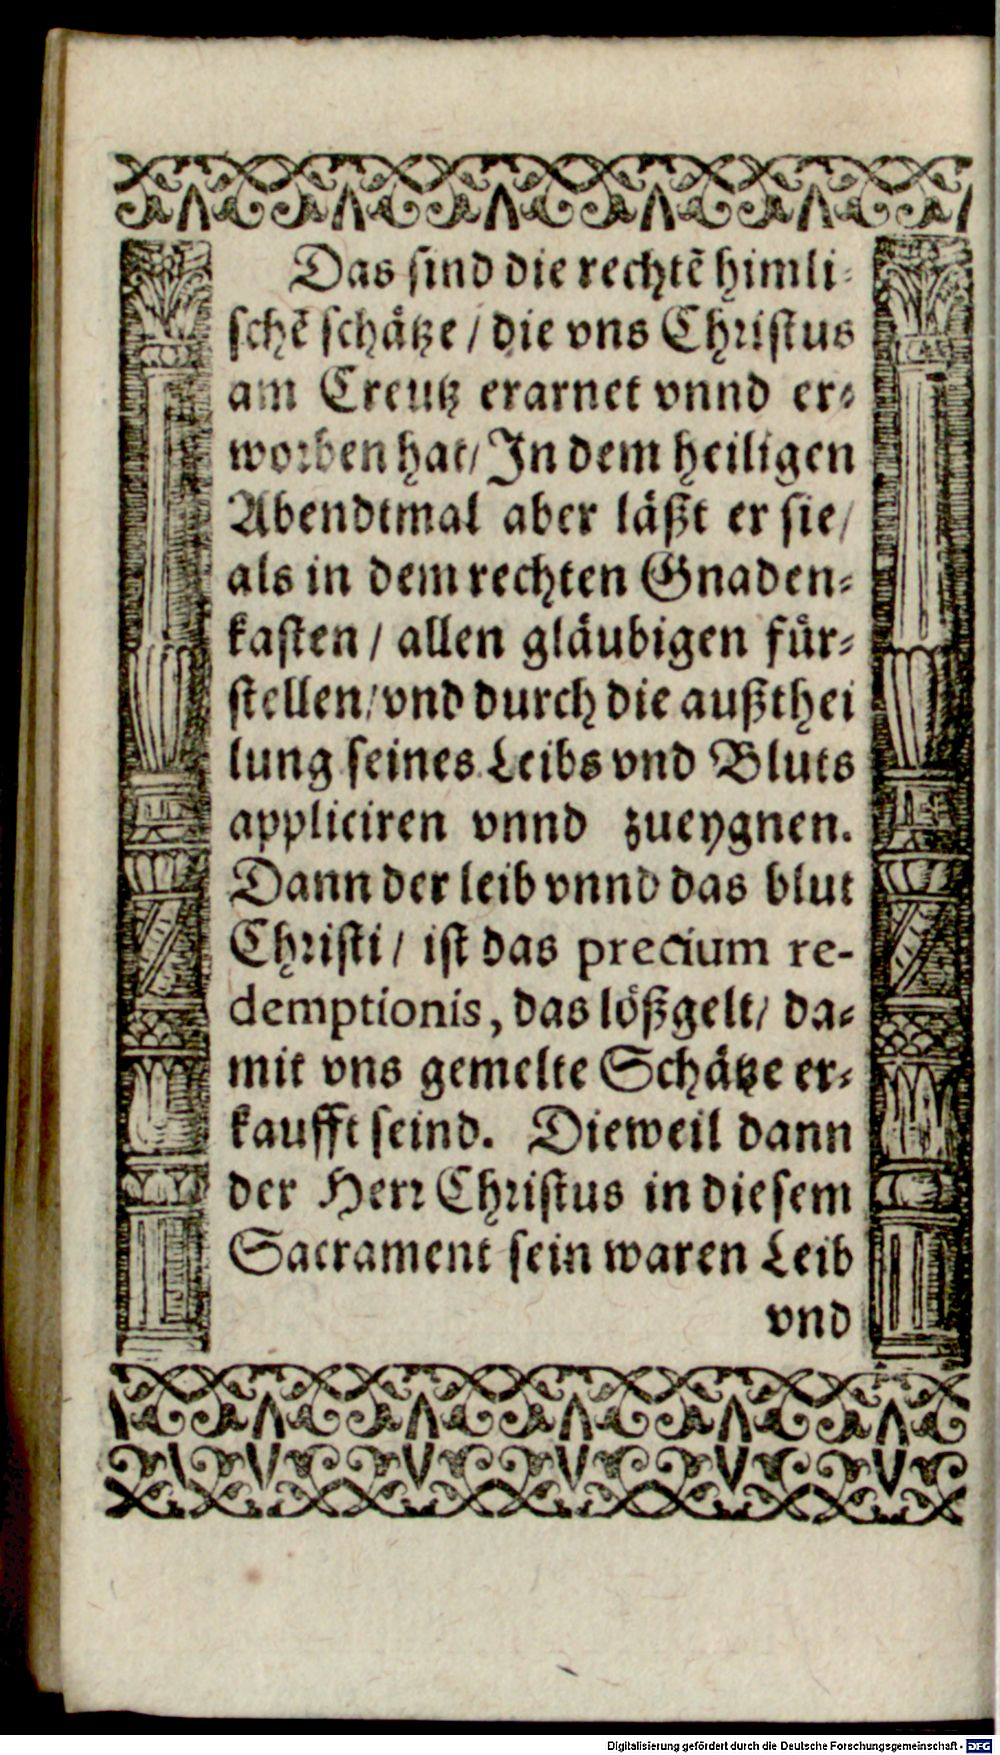 Das sind die rechtẽ himli⸗
schẽ schätze / die vns Christus
am Creutz erarnet vnnd er⸗
worben hat / In dem heiligen
Abendtmal aber läßt er sie /
als in dem rechten Gnaden⸗
kasten / allen gläubigen für⸗
stellen / vnd durch die außthei
lung seines Leibs vnd Bluts
appliciren vnnd zueygnen.
Dann der leib vnnd das blut
Christi / ist das precium re-
demptionis, das lößgelt / da⸗
mit vns gemelte Schätze er⸗
kaufft seind. Dieweil dann
der Herr Christus in diesem
Sacrament sein waren Leib
vnd
Digitalisierung gefördert durch die Deutsche Forschungsgemeinschaft - DFG